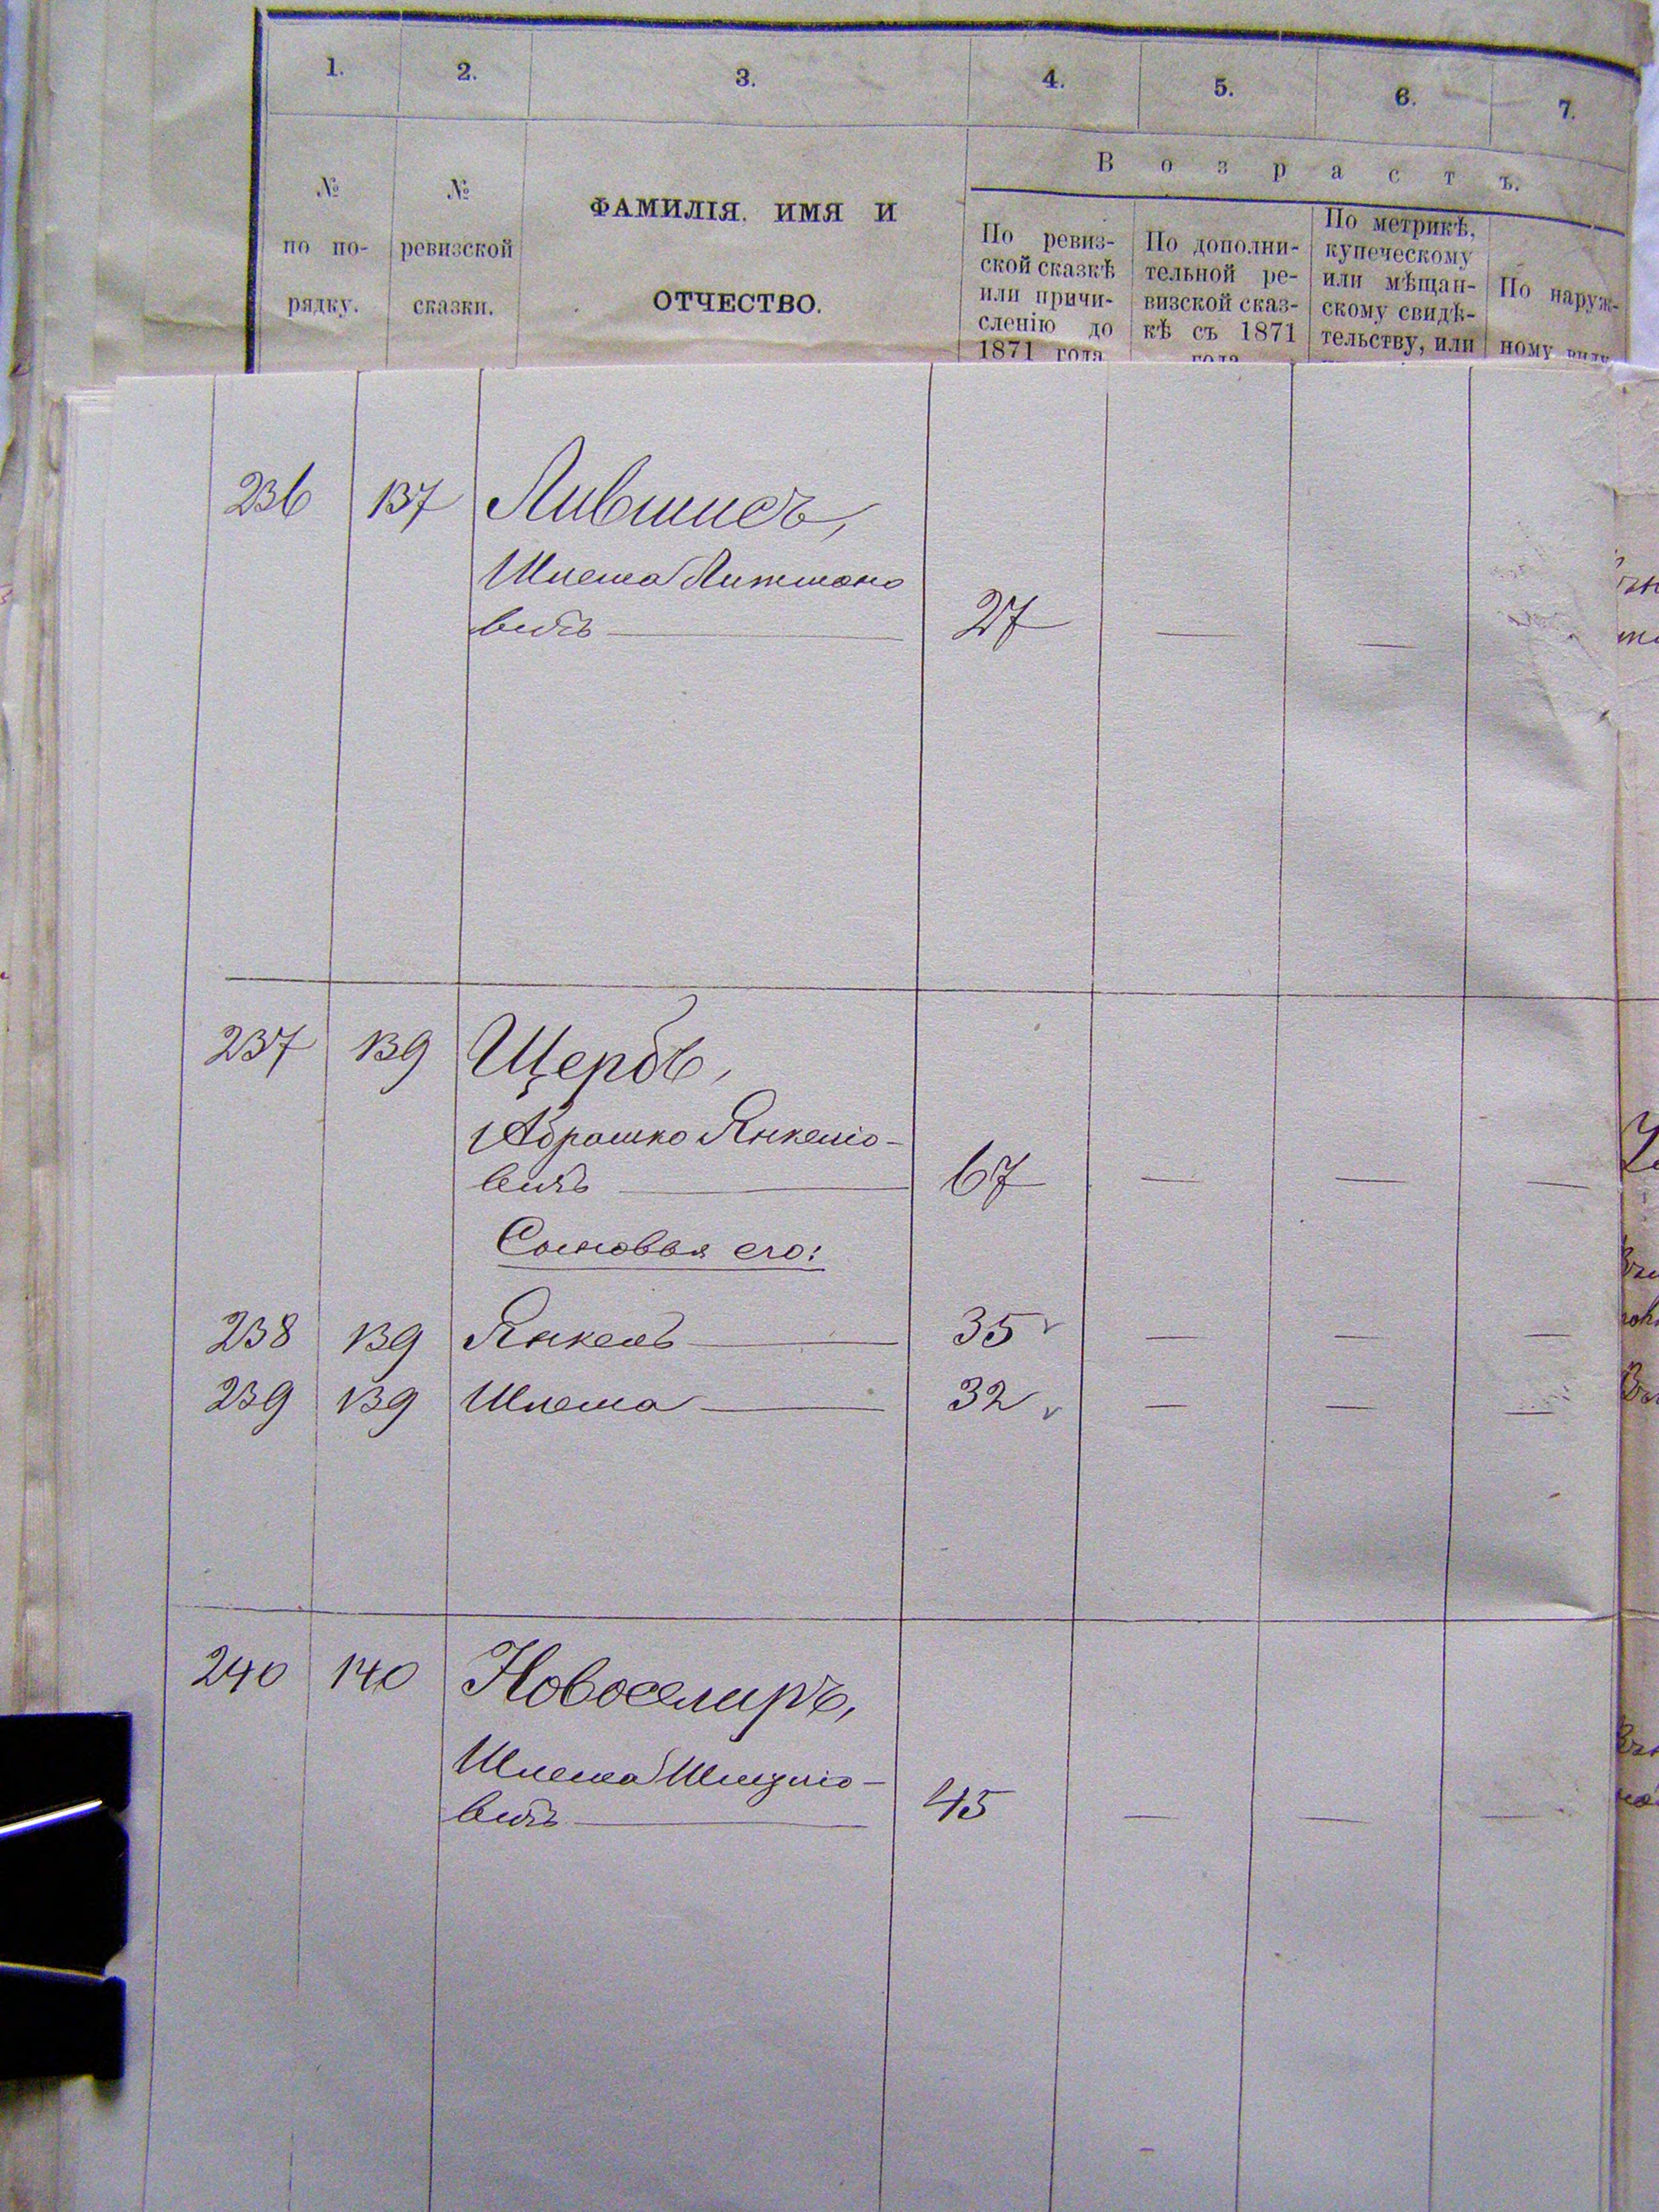 1. 2. 3. 4. 5. 6. 7.
№ по по- рядку.
№ ревизской сказки.
ФАМИЛІЯ. ИМЯ И
ОТЧЕСТВО.
Возрастъ.
По ревиз-
ской сказкѣ
или причи-
сленію до
1871 года
По дополни-
тельной ре-
визской сказ-
кѣ съ 1871
года
По метрикѣ,
купеческому
или мѣщан-
скому свидѣ-
тельству, или
По наруж-
ному виду
236 137 Лившисъ,
Шлема Литмано
вичъ — 27 — —
237 139 Щербъ,
Абрашко Янкеліо-
вичъ — 67 — — —
Сыновья его:
238 139 Янкель — 35 — — —
239 139 Шлема — 32 — — —
240 140 Новоселиръ,
Шлема Шмуліо-
вичъ — 45 — — —